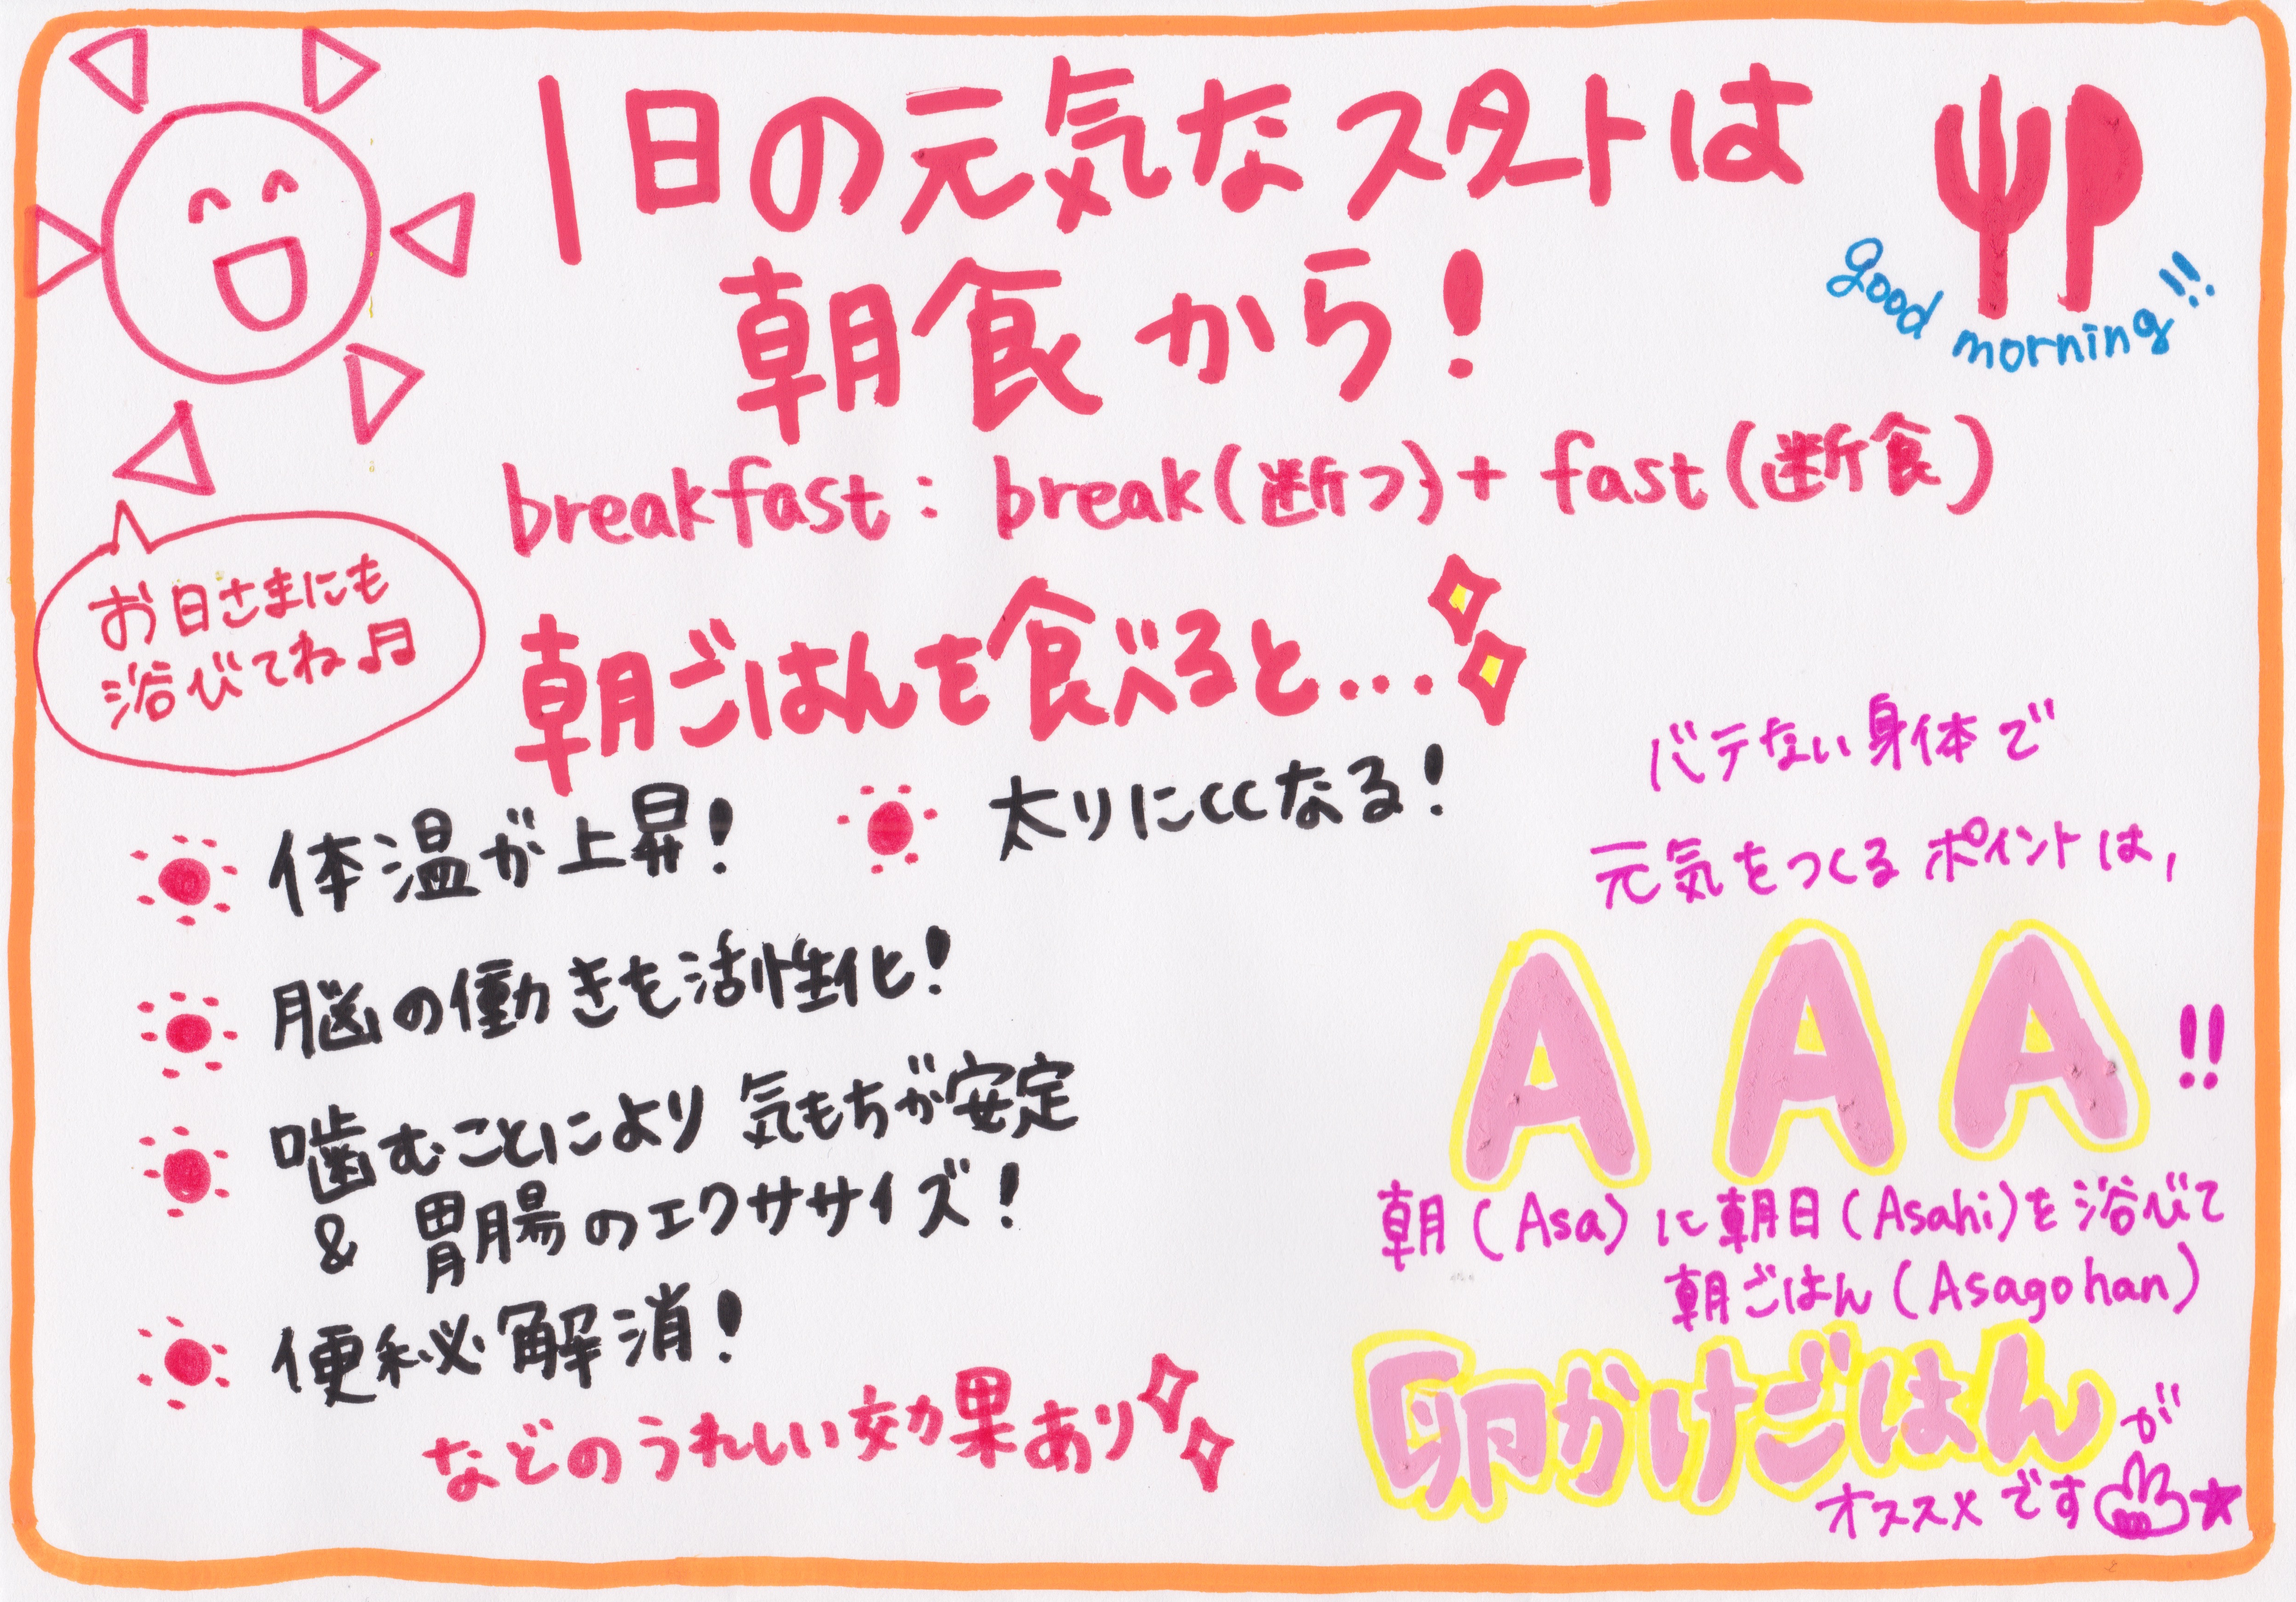 1日の元気なスタートは
朝食から!
good morning!!
breakfast: break(断つ)+ fast(断食)
お日さまにも
浴びてね♬
朝ごはんを食べると...
体温が上昇!
太りにくくなる!
脳の働きも活性化!
噛むことにより 気もちが安定
& 胃腸のエクササイズ!
便秘解消!
などのうれしい効果あり
バテない身体で
元気をつくるポイントは,
AAA!!
朝(Asa)に朝日(Asahi)を浴びて
朝ごはん(Asagohan)
卵かけごはんが
オススメです☆